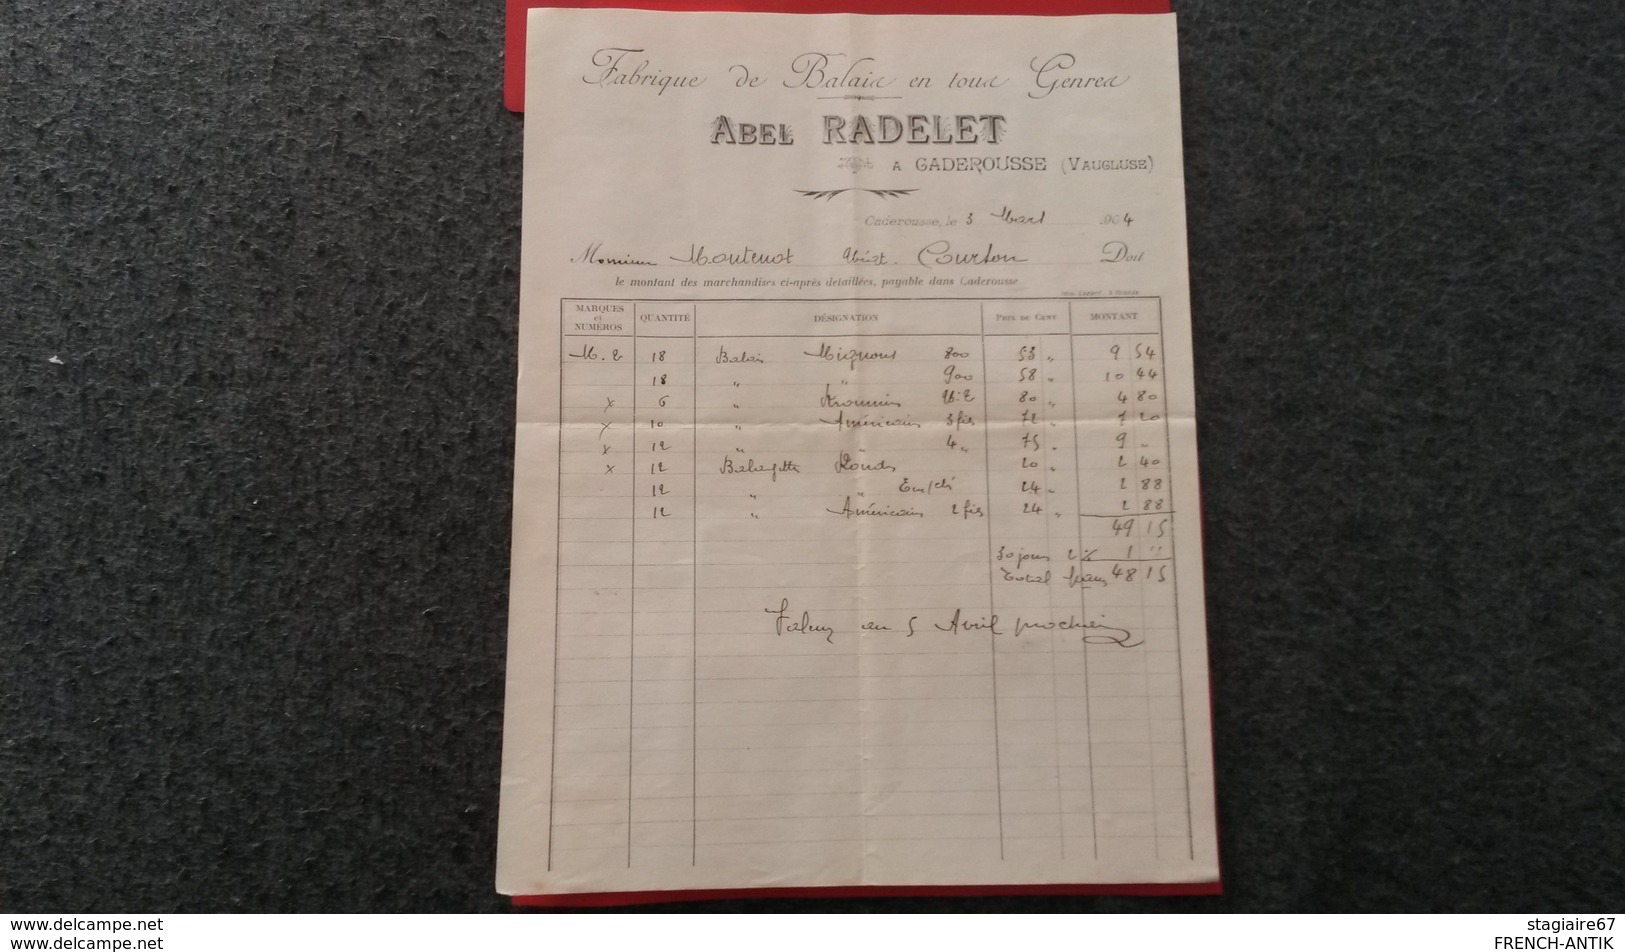 Fabrique de Balais en tous Genres
ABEL RADELET
A CADEROUSSE (VAUCLUSE)
Caderousse, le 3 Mars 904
Monsieur Montenot Courson Doit
le montant des marchandises ci-après détaillées, payable dans Caderousse
MARQUES et NUMÉROS QUANTITÉ DÉSIGNATION PRIX DU CENT MONTANT
M. 2 18 Balais Mignons 800 53 " 9 54
18 " " 900 58 " 10 44
x 6 " 80 " 4 80
x 10 " Américains 3 fils 72 " 7 20
x 12 " " 4 " 75 " 9 "
x 12 Balayettes Rondes 20 " 2 40
12 " " 24 " 2 88
12 " Américains 2 fils 24 " 2 88
49 15
30 jours 2 % 1 "
Total francs 48 15
Valeur au 5 Avril prochain
www.delcampe.net stagiaire67
www.delcampe.net FRENCH-ANTIK